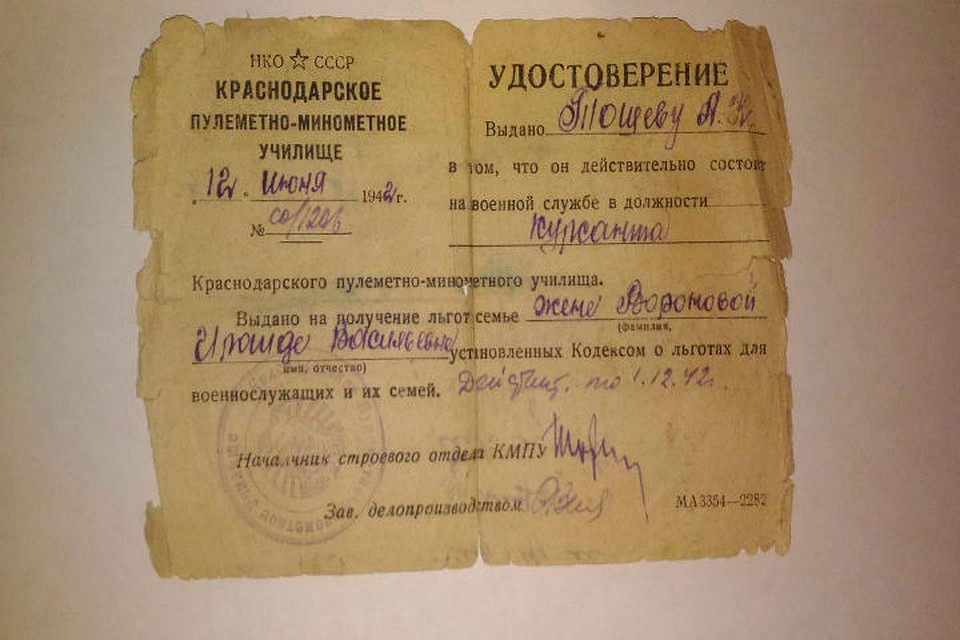 НКО ☆ СССР
КРАСНОДАРСКОЕ
ПУЛЕМЕТНО-МИНОМЕТНОЕ
УЧИЛИЩЕ
12 Июня 1942г.
№
УДОСТОВЕРЕНИЕ
Выдано Тощеву
в том, что он действительно состоит
на военной службе в должности
Курсанта
Краснодарского пулеметно-минометного училища.
Выдано на получение льгот семье жене Вороновой
(фамилия,
Ираиде Васильевне установленных Кодексом о льготах для
имя, отчество)
военнослужащих и их семей. Действит. по 1.12.42г.
Началчник строевого отдела КМПУ
Зав. делопроизводством
МА3354—2282